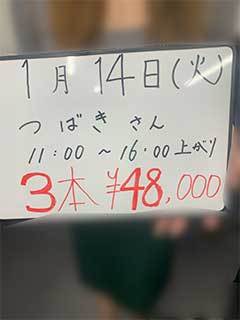 1月14日(火)
つばきさん
11:00～16:00上がり
3本 ¥48,000